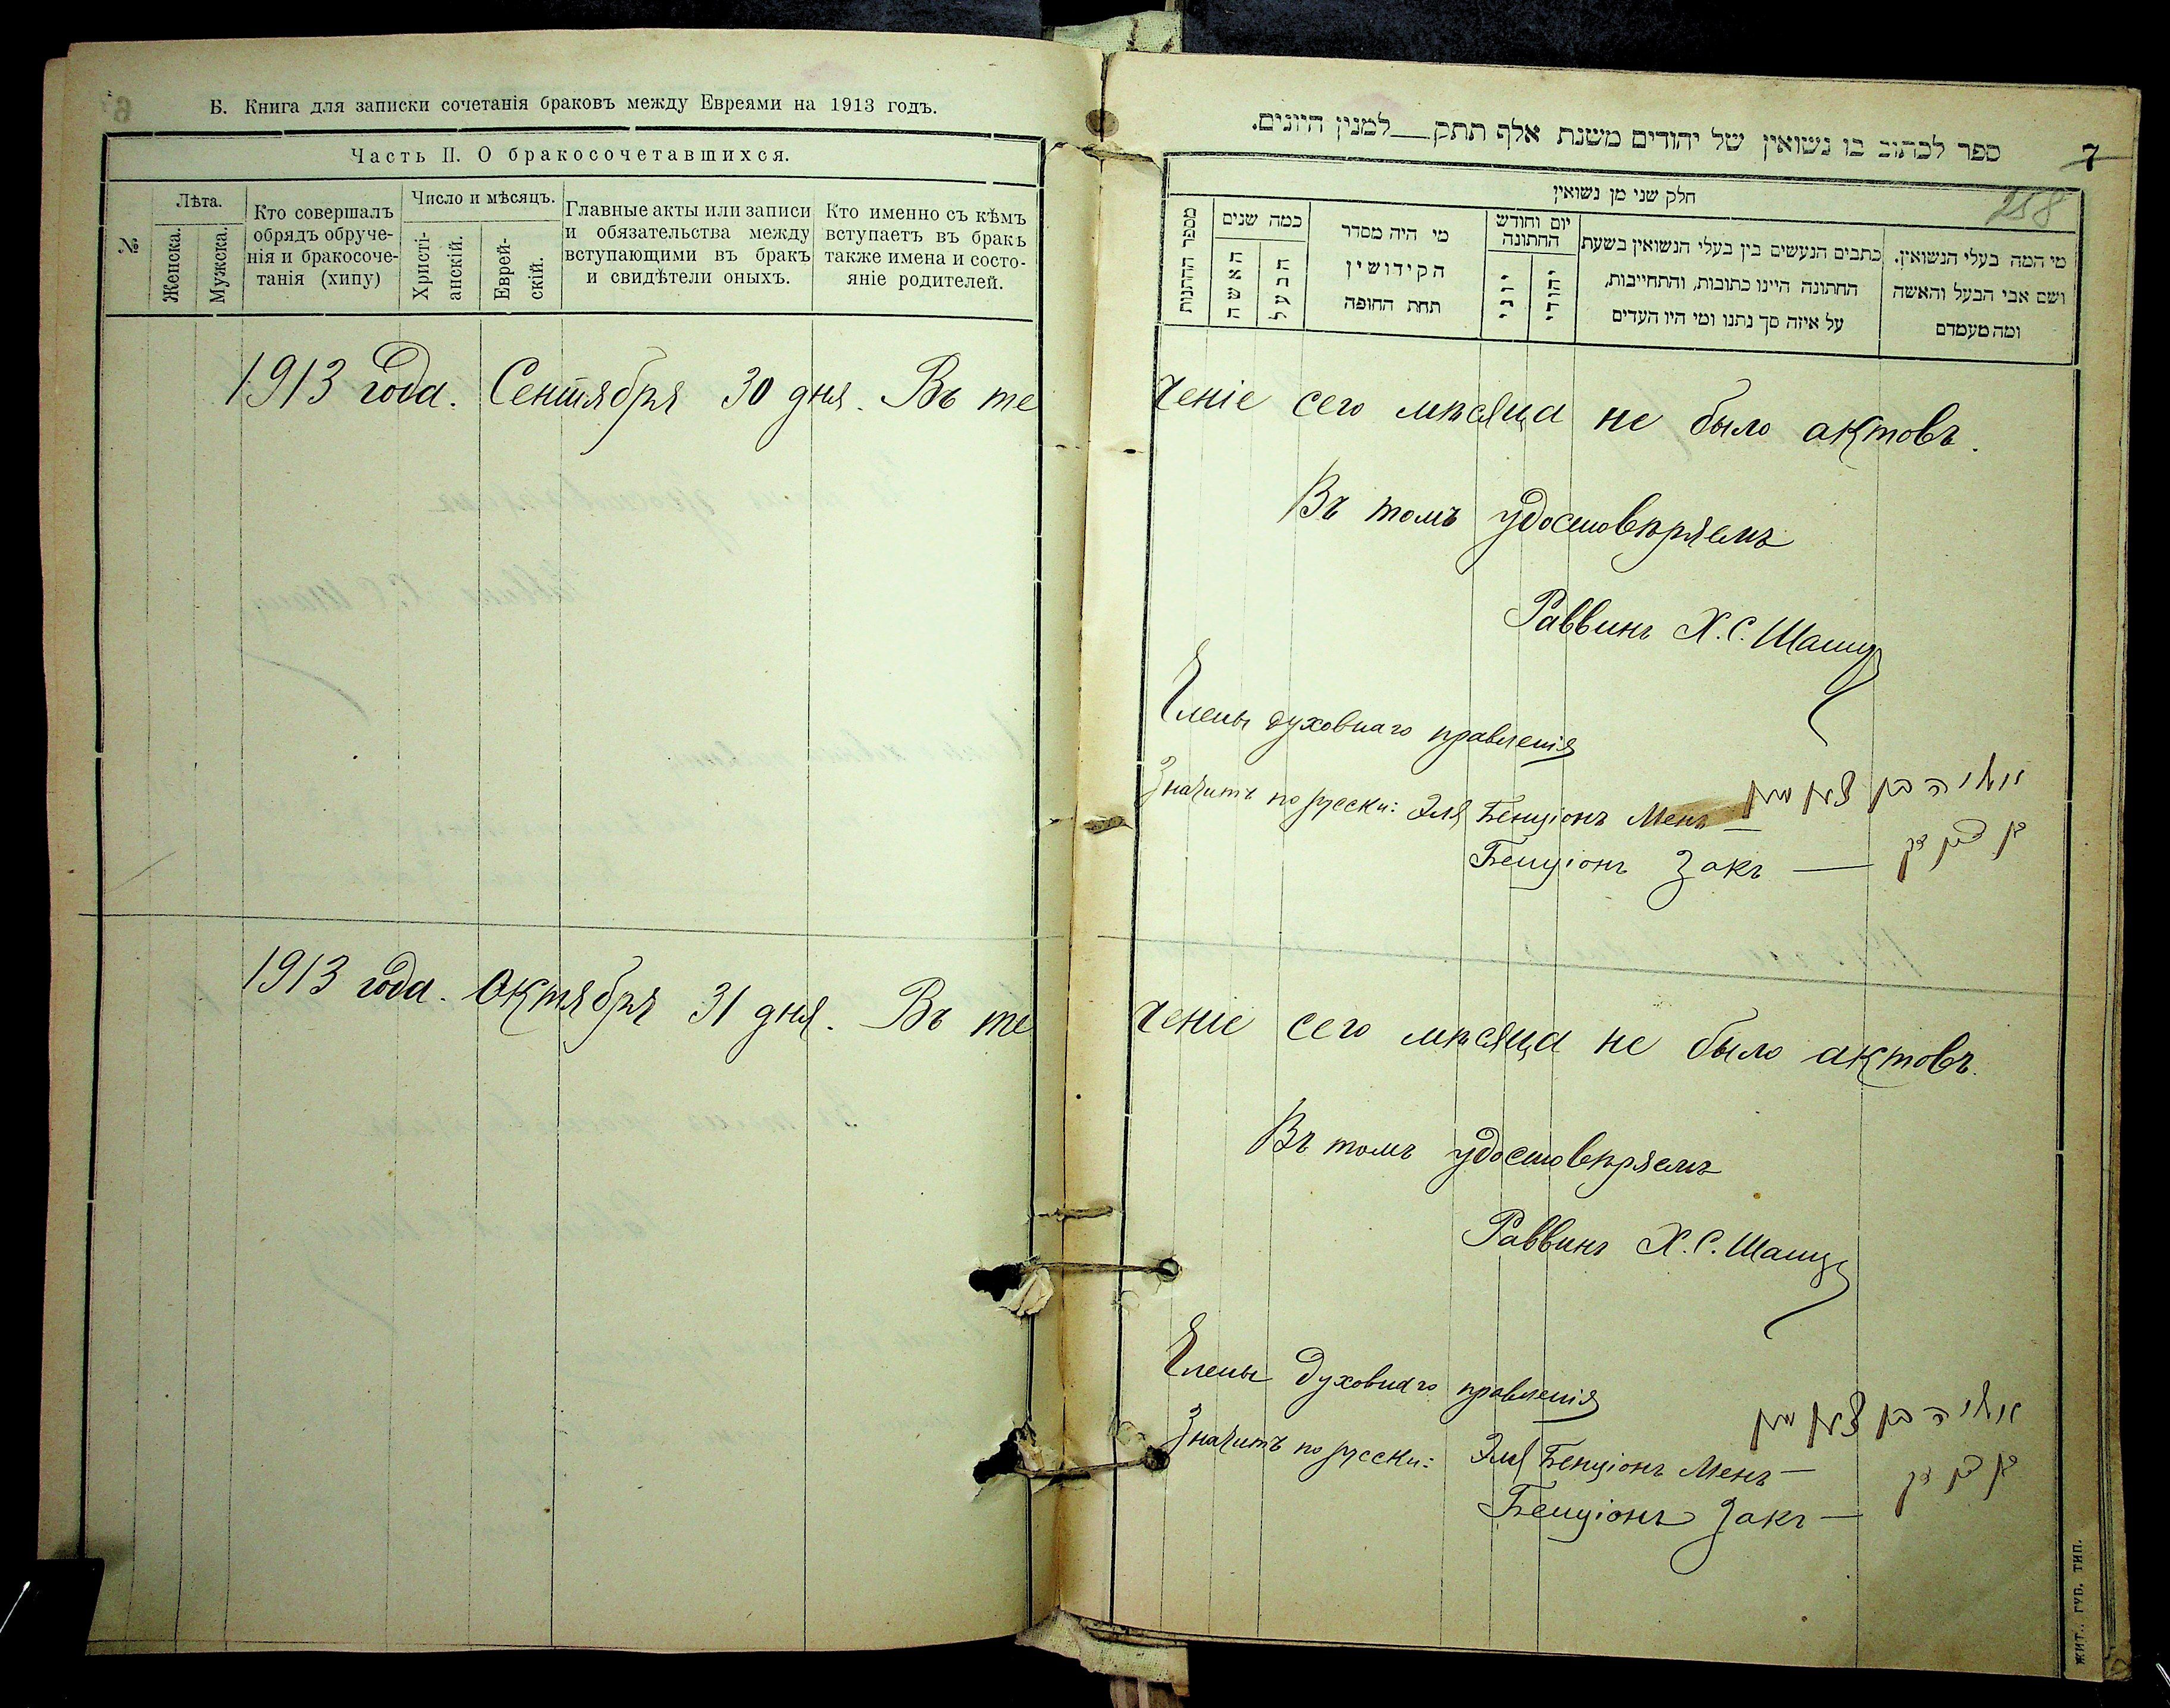 Б. Книга для записки сочетанія браковъ между Евреями на 1913 годъ.
Часть II. О бракосочетавшихся.
№
Лѣта.
Женска.
Мужска.
Кто совершалъ
обрядъ обруче-
нія и бракосоче-
танія (хипу)
Число и мѣсяцъ.
Христі-
анскій.
Еврей-
скій.
Главные акты или записи
и обязательства между
вступающими въ бракъ
и свидѣтели оныхъ.
Кто именно съ кѣмъ
вступаетъ въ бракъ
также имена и состо-
яніе родителей.
1913 года. Сентября 30 дня. Въ те
1913 года. Октября 31 дня. Въ те
ספר לכתוב בו נשואין של יהודים משנת אלף תתק__למנין היונים.
7
258
חלק שני מן נשואין
מספר החתונות
כמה שנים
האשה
הבעל
מי היה מסדר
הקידושין
תחת החופה
יום וחודש
החתונה
יוני
יהודי
כתבים הנעשים בין בעלי הנשואין בשעת
החתונה היינו כתובות, והתחייבות,
על איזה סך נתנו ומי היו העדים
מי המה בעלי הנשואין.
ושם אבי הבעל והאשה
ומה מעמדם
ченіе сего мѣсяца не было актовъ.
Въ томъ удостовѣряемъ
Раввинъ Х. С. Шацъ
Члены духовнаго правленія
אליה בן ציון מען
Значитъ по русски: Эля Бенціонъ Менъ —
Бенціонъ Закъ —
ченіе сего мѣсяца не было актовъ.
Въ томъ удостовѣряемъ
Раввинъ Х. С. Шацъ
Члены духовнаго правленія
אליה בן ציון מען
Значитъ по русски: Эля Бенціонъ Менъ —
Бенціонъ Закъ —
ЖИТ., ГУБ. ТИП.